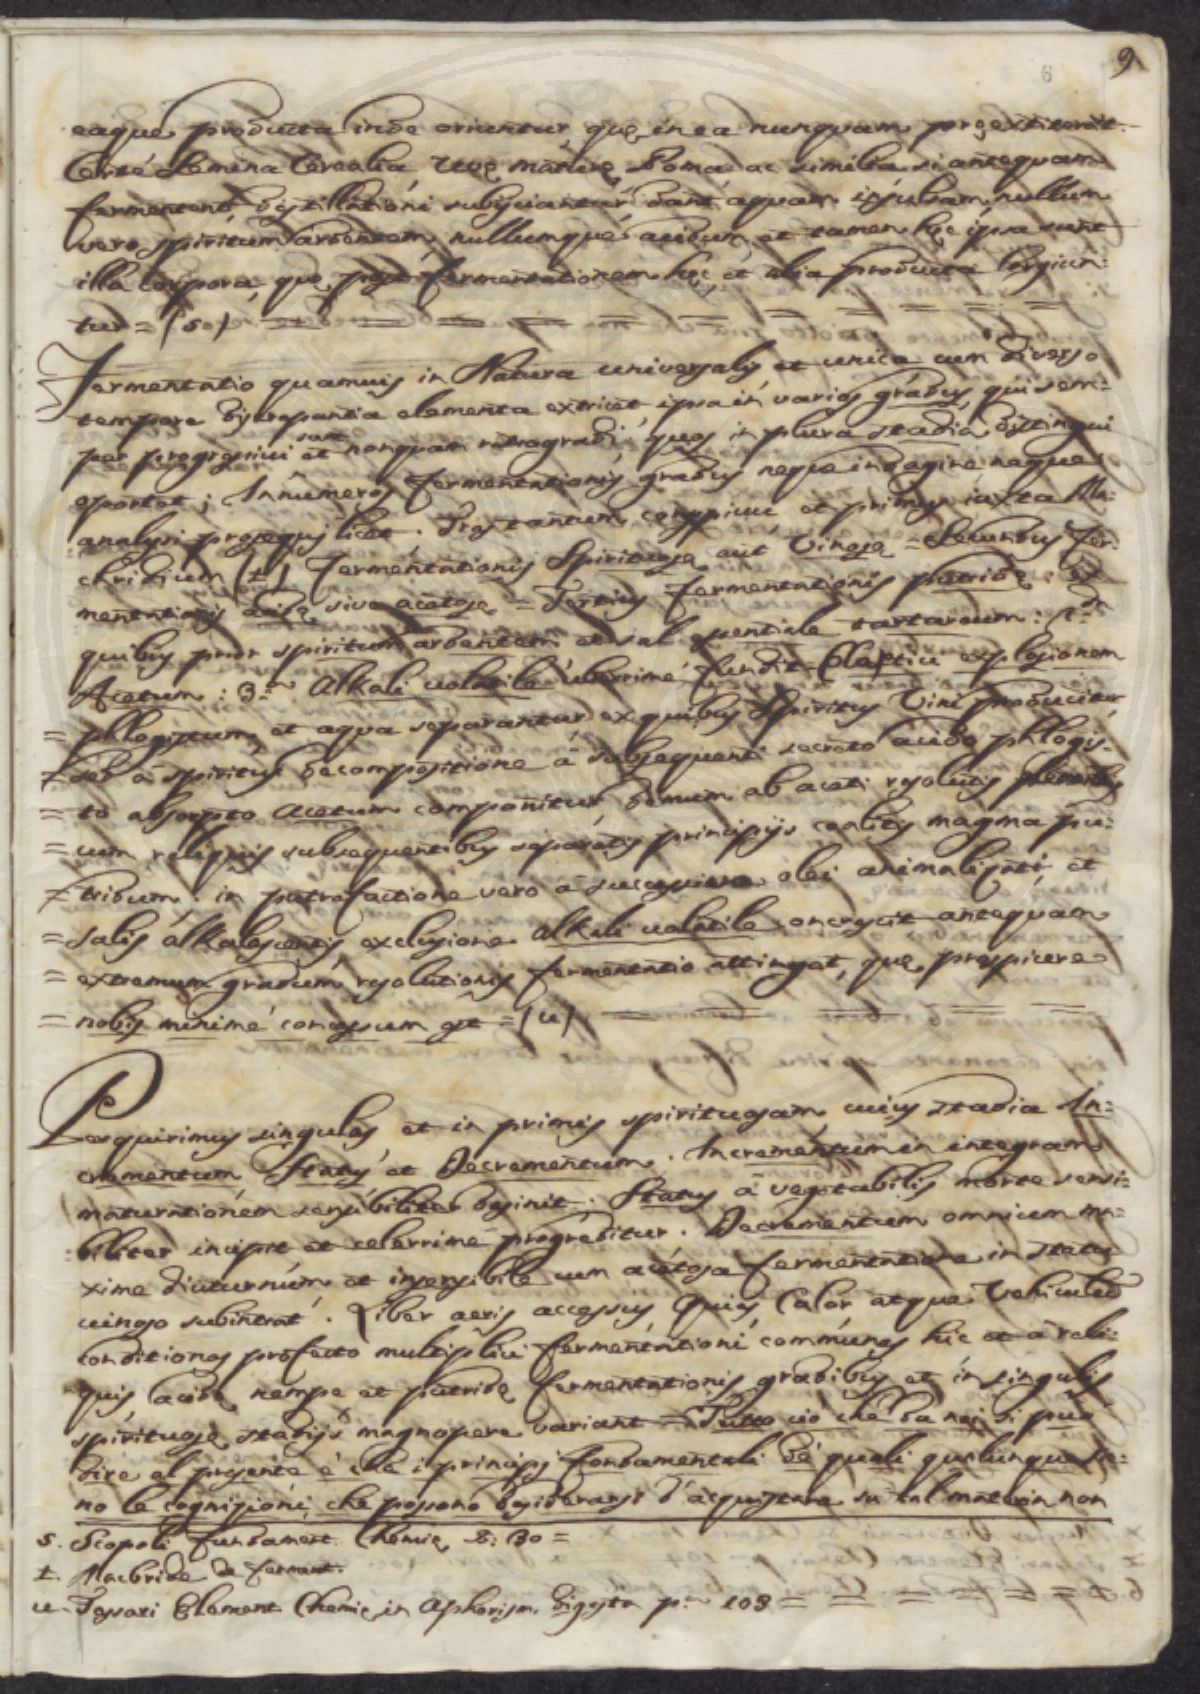 9
6
eaque producta inde oriuntur quę in ea nunquam pręextiterit.
Certé Semina Cerealia Uvę maturę Poma ac similia si antequam
fermentent distillationi subijciantur dant aquam insulsam nullum
vero spiritum ardentem nullumque acidum et tamen hęc ipsa sunt
illa corpora, quę post fermentationem hęc et alia producta largiun:
tur = (s)
Fermentatio quamvis in Natura universalis et unica cum diverso
tempore discrepantia elementa extricet ipsa in varios gradus, qui sem:
per progressivi sunt et nonquam retrogradi, quos in plura stadia distingui
oportet; Innumeros fermentationis gradus neque indagine neque
analysi prosequi licet. Tres tantum conspicui et primus iuxta Ma:
chridium (t) fermentationis Spirituosę aut Vinosę = Secundus Fer:
mentationis acidę sive acetosę = Tertius fermentationis putridę: ex
quibus prior spiritum ardentem et sal essentiale tartareum: 2.us
Acetum: 3.us Alkali volatile uberrimé fundit. Elastici explosionem
= phlogistum, et aqva separantur ex quibus Spiritus Vini producitur
= sed á spiritus decompositione á subsequenti secreto acido phlogis-
= to absorpto acetum componitur demum ab aceti resolutis elementis
= cum reliquis subsequentibus separatis principijs coalitis magma pu:
= tridum. in putrefactione vero á successiva olei animalizati, et
= salis alkalescentis exclusione alkali volatile oncrescit antequam
= extremum gradum resolutionis fermentatio attingat, quę prospicere
= nobis minimé concessum est = (u)
Perquirimus singulas et in primis spirituosam cuius stadia In:
crementum Status et Decrementum. Incrementum in integram
maturationem sensibiliter desinit. Status á vegetabilis morte sensi:
biliter incipit et celerrime progreditur. Decrementum omnium ma:
xime diuturnum et insensibile cum acetosa fermentatione in statu
vinoso subintrat. Liber aeris accessus Quies Calor atque Vehiculum
conditiones profecto multiplici fermentationi communes hic et á reli:
quis, acidę nempe et putridę fermentationis gradibus et in singulis
spirituosę stadijs magnopere variant = Tutto ció che da noi si puó
dire al presente é che i principj fondamentali de quali qualunque sie:
no le cognizioni, che possono desiderarsi d'acquistare su tal materia non
s. Scopoli fundament. Chemię §: 30 =
t. Macbride de ferment.
u. Tessari Element. Chemię in Aphorism. digesta p.a 108 =